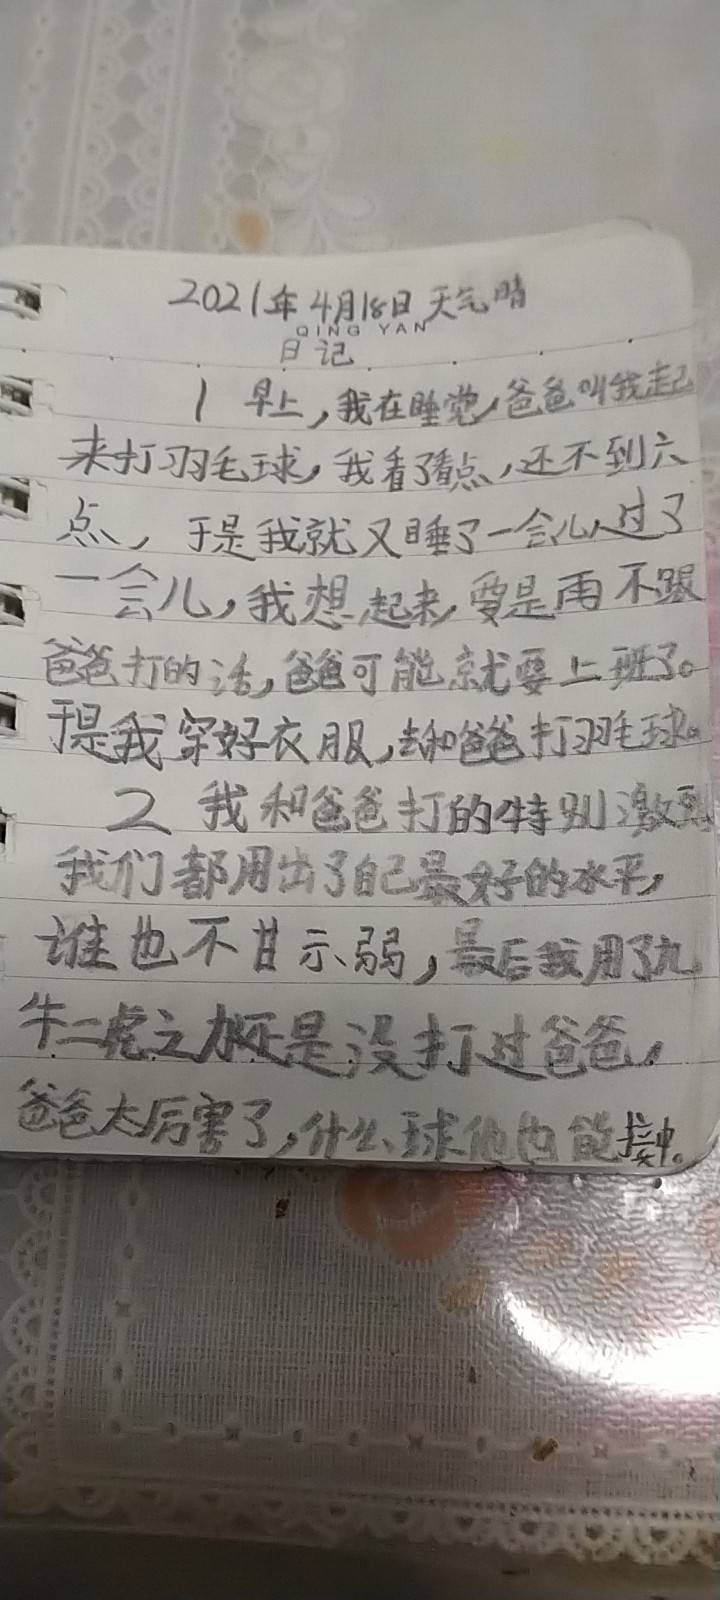 2021年4月18日 天气晴
QING YAN
日记
1 早上，我在睡觉，爸爸叫我起
来打羽毛球，我看了看点，还不到六
点，于是我就又睡了一会儿，过了
一会儿，我想起来，要是再不跟
爸爸打的话，爸爸可能就要上班了。
于是我穿好衣服，去和爸爸打羽毛球。
2 我和爸爸打的特别激烈
我们都用出了自己最好的水平，
谁也不甘示弱，最后我用了九
牛二虎之力还是没打过爸爸，
爸爸太厉害了，什么球他也能接中。